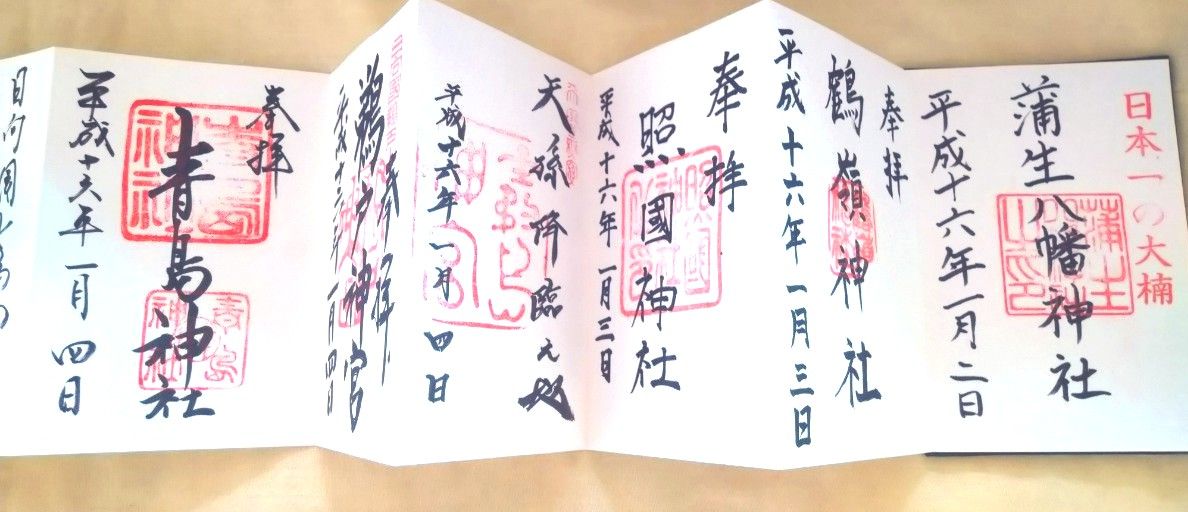 日本一の大楠
蒲生八幡神社
平成十六年一月二日
奉拝
鶴嶺神社
平成十六年一月三日
奉拝
照國神社
平成十六年一月三日
天孫降臨之地
平成十六年一月四日
奉拝
鵜戸神宮
平成十六年一月四日
奉拝
青島神社
平成十六年一月四日